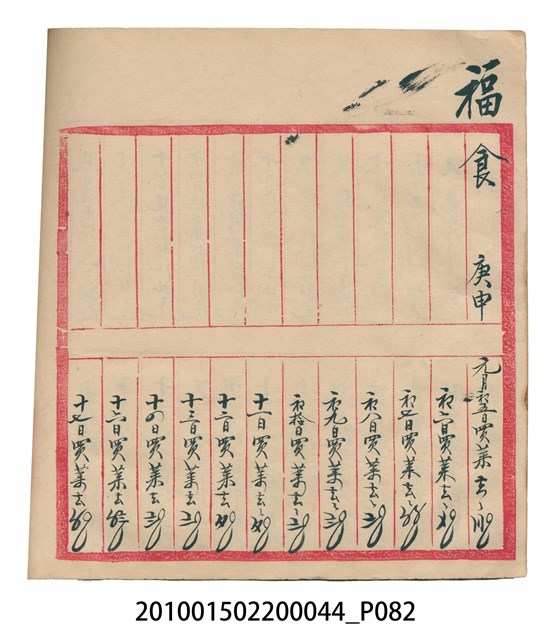 福
食 庚申
元月初五日買菜去
初六日買菜去
初七日買菜去
初八日買菜去
初九日買菜去
初拾日買菜去
十一日買菜去
十二日買菜去
十三日買菜去
十四日買菜去
十六日買菜去
十七日買菜去
201001502200044_P082